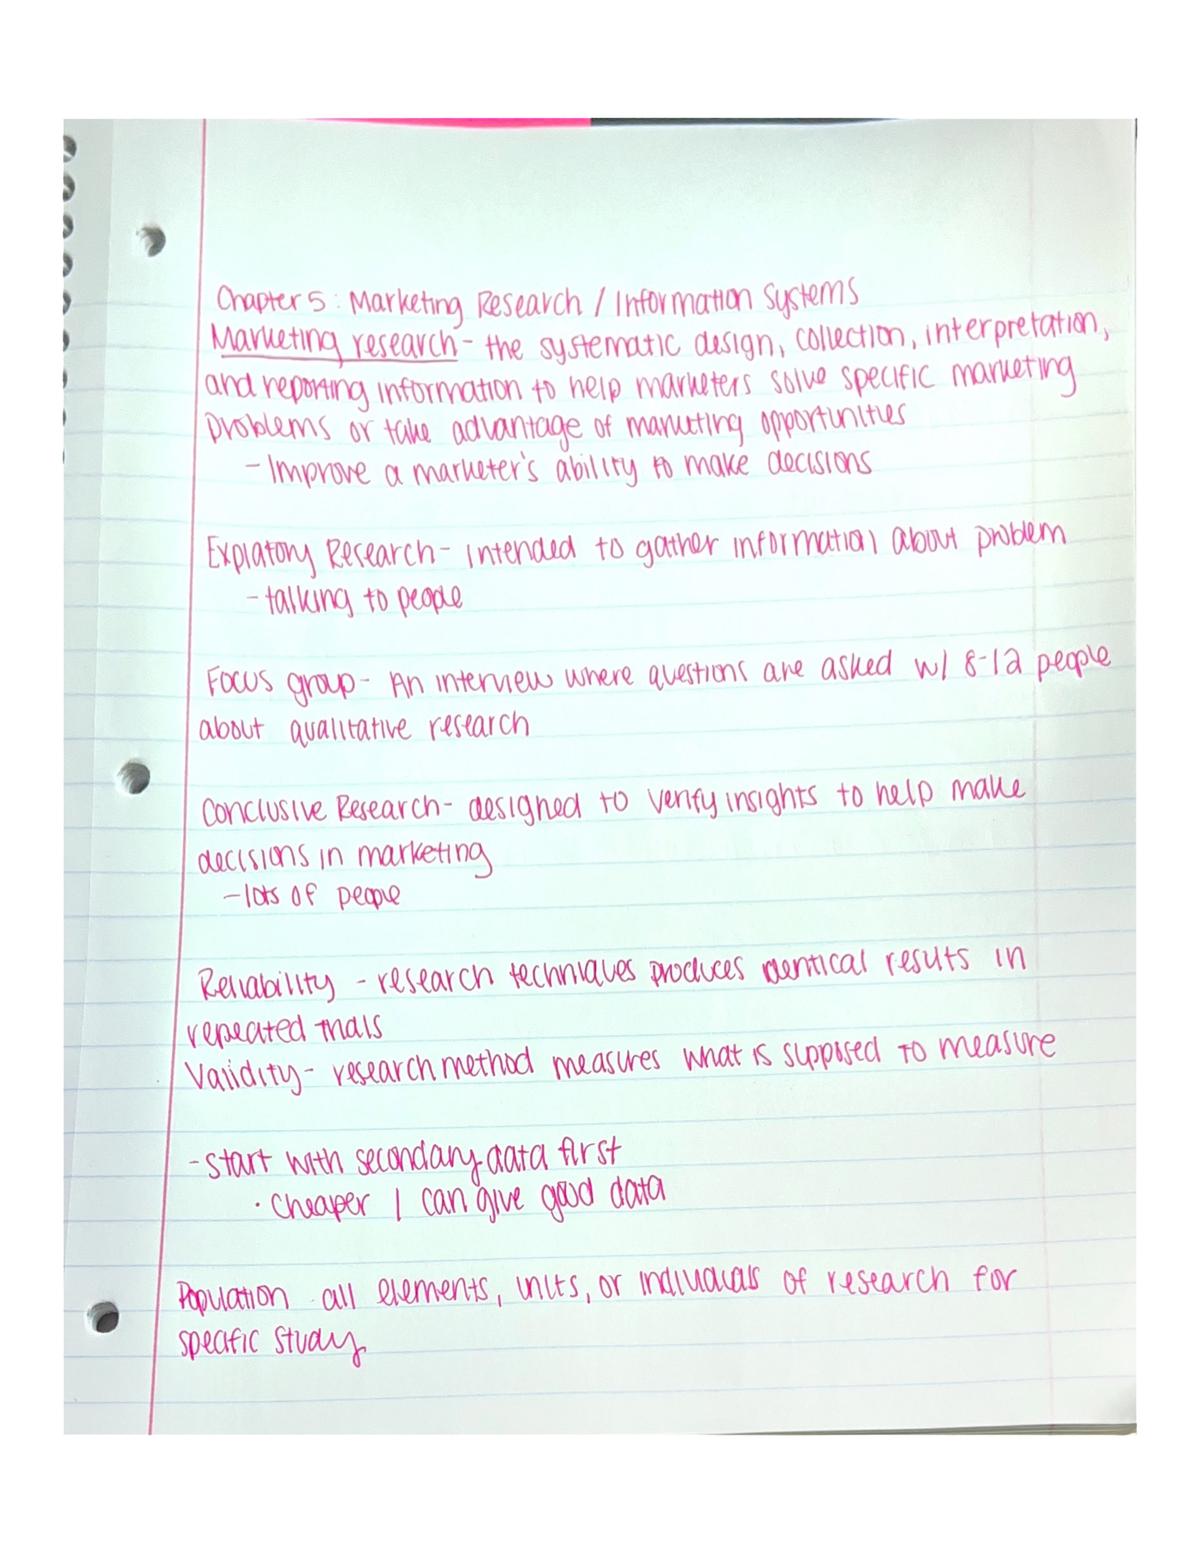 Chapter 5: Marketing Research / Information Systems
Marketing research - the systematic design, collection, interpretation,
and reporting information to help marketers solve specific marketing
problems or take advantage of marketing opportunities
- Improve a marketer's ability to make decisions
Explatory Research - intended to gather information about problem
- talking to people
Focus group - An interview where questions are asked w/ 8-12 people
about qualitative research
Conclusive Research - designed to verify insights to help make
decisions in marketing
- lots of people
Reliability - research techniques produces identical results in
repeated trials
Validity - research method measures what is supposed to measure
- start with secondary data first
· Cheaper / can give good data
Population all elements, units, or individuals of research for
specific study